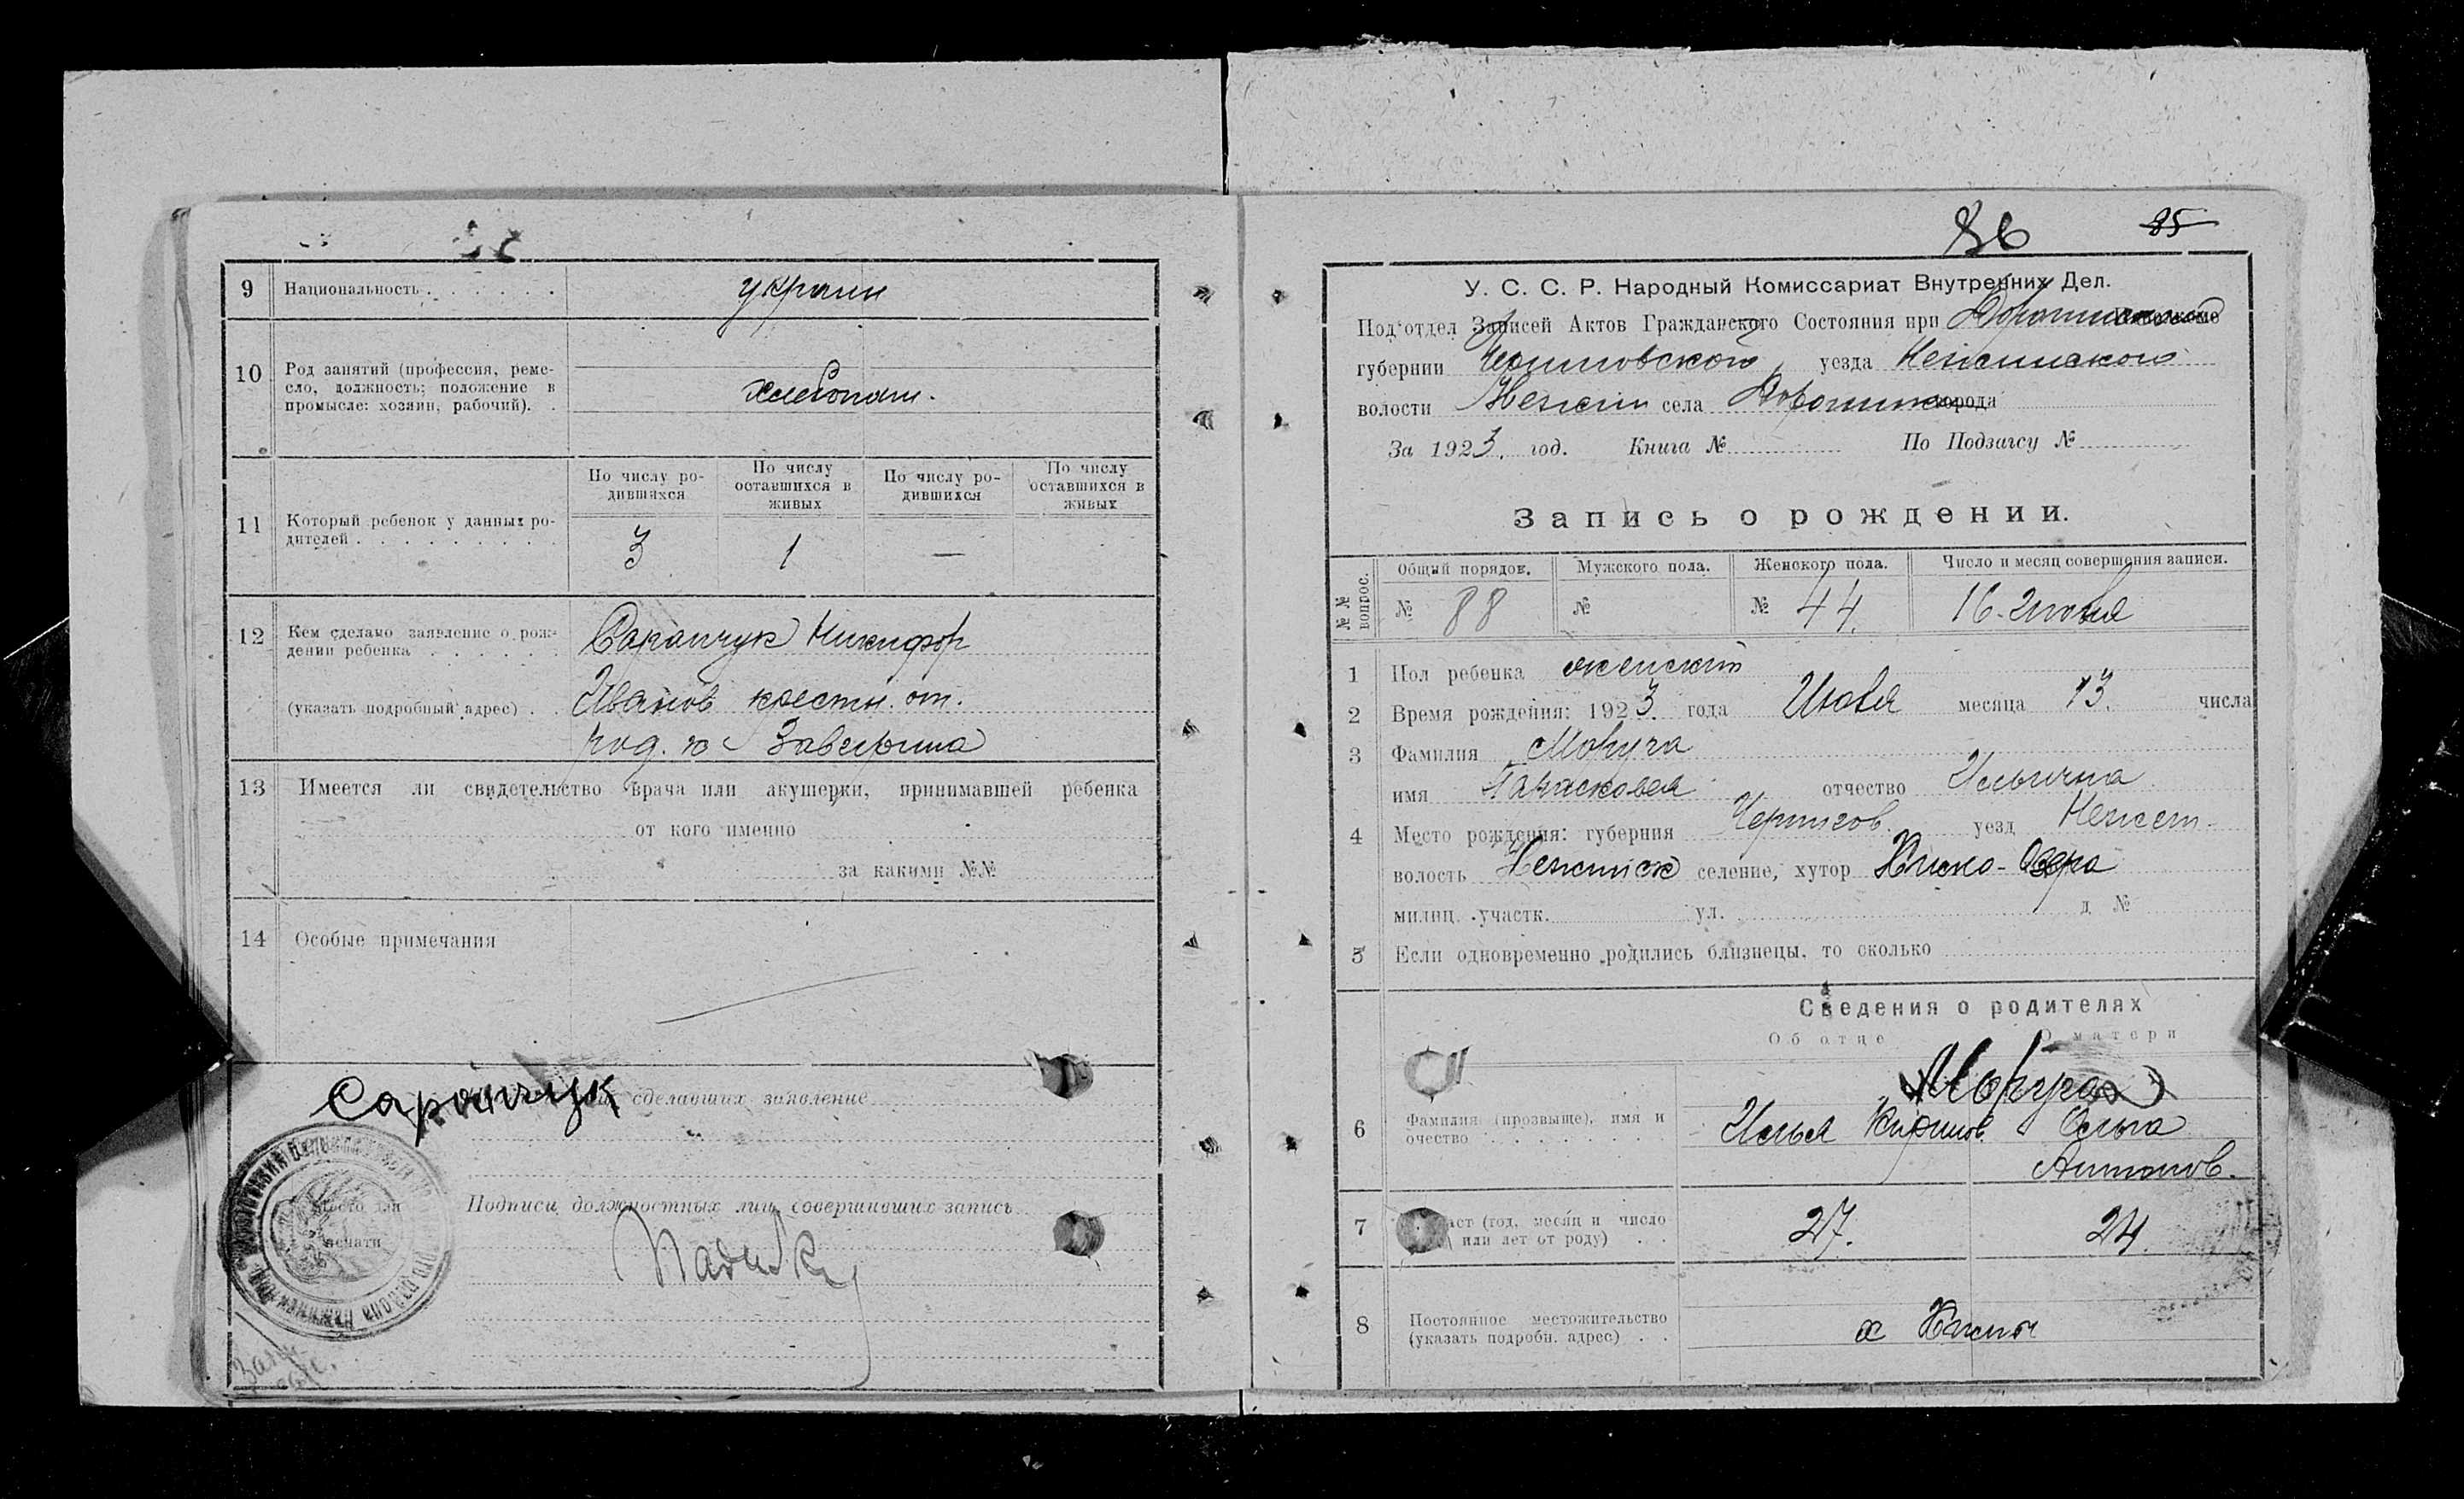 9 Национальность . . . . . . украин
10 Род занятий (профессия, реме-
сло, должность; положение в
промысле: хозяин, рабочий). . хлебопаш.
По числу ро-
дившихся
По числу
оставшихся в
живых
По числу ро-
дившихся
По числу
оставшихся в
живых
11 Который ребенок у данных ро-
дителей . . . . . . . . . 3 1 —
12 Кем сделано заявление о рож-
дении ребенка . . . . . . Саранчук Никифор
(указать подробный адрес) . . Иванов крестн. от.
род. Заверша
13 Имеется ли свидетельство врача или акушерки, принимавшей ребенка
от кого именно
за какими №№
14 Особые примечания
Саранчук сделавших заявление
Место для
печати
Подписи должностных лиц, совершивших запись
86 85
У. С. С. Р. Народный Комиссариат Внутренних Дел.
Под‘отдел Записей Актов Гражданского Состояния при
губернии Черниговской уезда Неженского
волости Нежин села города
За 1923 год. Книга № По Подзагсу №
Запись о рождении.
№ №
вопрос.
Общий порядок. Мужского пола. Женского пола. Число и месяц совершения записи.
№ 88 № № 44. 16 Июня
1 Пол ребенка женский
2 Время рождения: 1923 года месяца 13. числа
3 Фамилия Мопуга
имя Парасковея отчество Ильична
4 Место рождения: губерния Чернигов. уезд Нежин.
волость Неженск селение, хутор Озера
милиц. участк. ул. д №
5 Если одновременно родились близнецы, то сколько
Сведения о родителях
Об отце О матери
Мопуга
6 Фамилия (прозвище), имя и
очество . . . . . . Илья Кирилов. Ольга
Антонов.
7 аст (год, месяц и число
или лет от роду) . . 27. 24.
8 Постоянное местожительство
(указать подробн. адрес) . . х